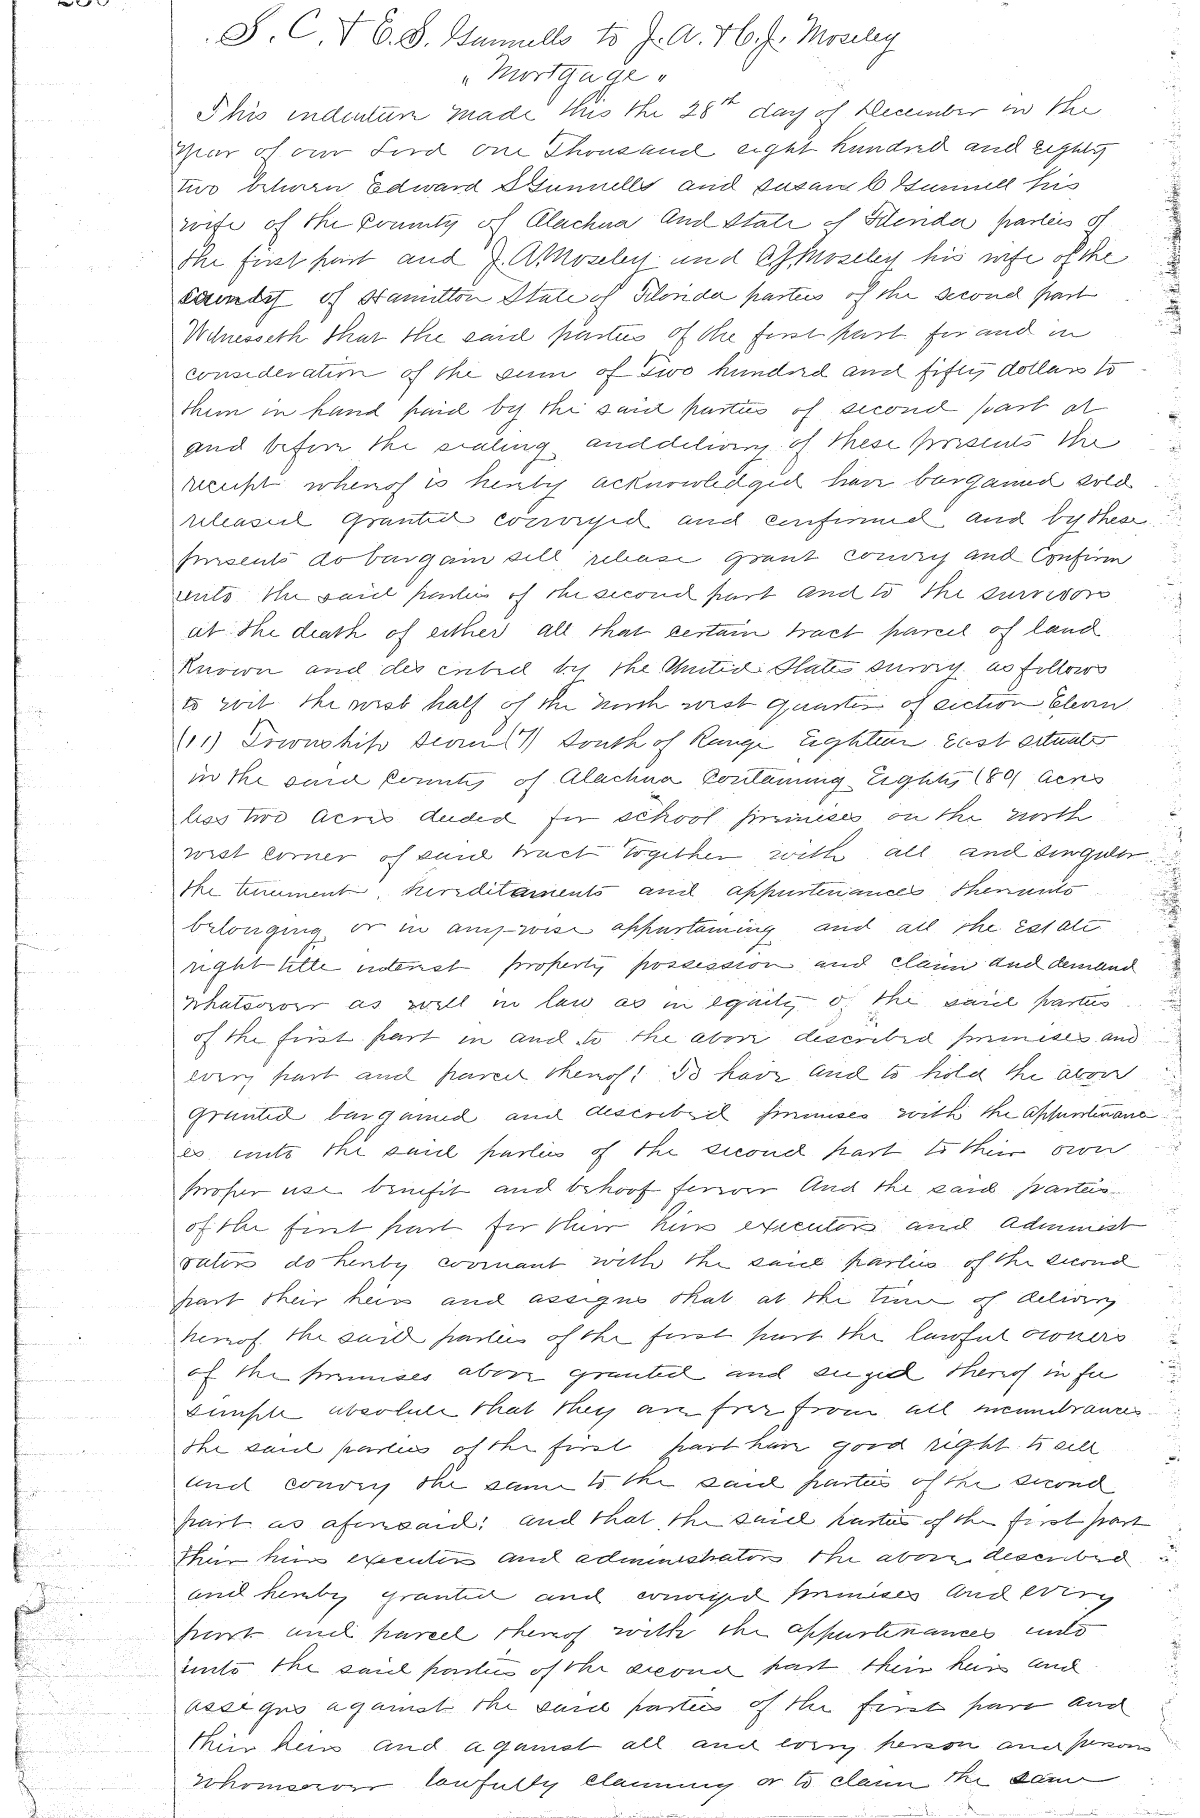 S. C. & E. S. Gunnells to J. A. & C. J. Moseley
"Mortgage"
This indenture made this the 28th day of December in the
year of our Lord one Thousand eight hundred and eighty
two between Edward S Gunnells and Susan C Gunnell his
wife of the County of Alachua And State of Florida parties of
the first part and J. A. Moseley and C. J. Moseley his wife of the
county of Hamilton State of Florida parties of the second part
Witnesseth that the said parties of the first part for and in
consideration of the sum of Two hundred and fifty dollars to
them in hand paid by the said parties of second part at
and before the sealing and delivery of these presents the
receipt whereof is hereby acknowledged have bargained sold
released granted conveyed and confirmed and by these
presents do bargain sell release grant convey and Confirm
unto the said parties of the second part and to the survivors
at the death of either all that certain tract parcel of land
Known and described by the United States survey as follows
to wit the west half of the north west quarter of section Eleven
(11) Township Seven (7) South of Range Eighteen East situate
in the said County of Alachua Containing Eighty (80) Acres
less two Acres deeded for school premises on the north
west corner of said tract Together with all and singular
the tenement, hereditaments and appurtenances thereunto
belonging or in any-wise appurtaining and all the Estate
right title interest property possession and claim and demand
whatsoever as well in law as in equity of the said parties
of the first part in and to the above described premises and
every part and parcel thereof: To have and to hold the above
granted bargained and described premises with the appurtenanc
es unto the said parties of the second part to their own
proper use benefit and behoof forever And the said parties
of the first part for their heirs executors and administ
rators do hereby covenant with the said parties of the second
part their heirs and assigns that at the time of delivery
hereof the said parties of the first part the lawful owners
of the premises above granted and seized thereof in fee
simple absolute that they are free from all incumbrances
the said parties of the first part have good right to sell
and convey the same to the said parties of the second
part as aforesaid: and that the said parties of the first part
their heirs executors and administrators the above described
and hereby granted and conveyed premises and every
part and parcel thereof with the appurtenances unto
unto the said parties of the second part their heirs and
assigns against the said parties of the first part and
their heirs and against all and every person and persons
whomsoever lawfully claiming or to claim the same